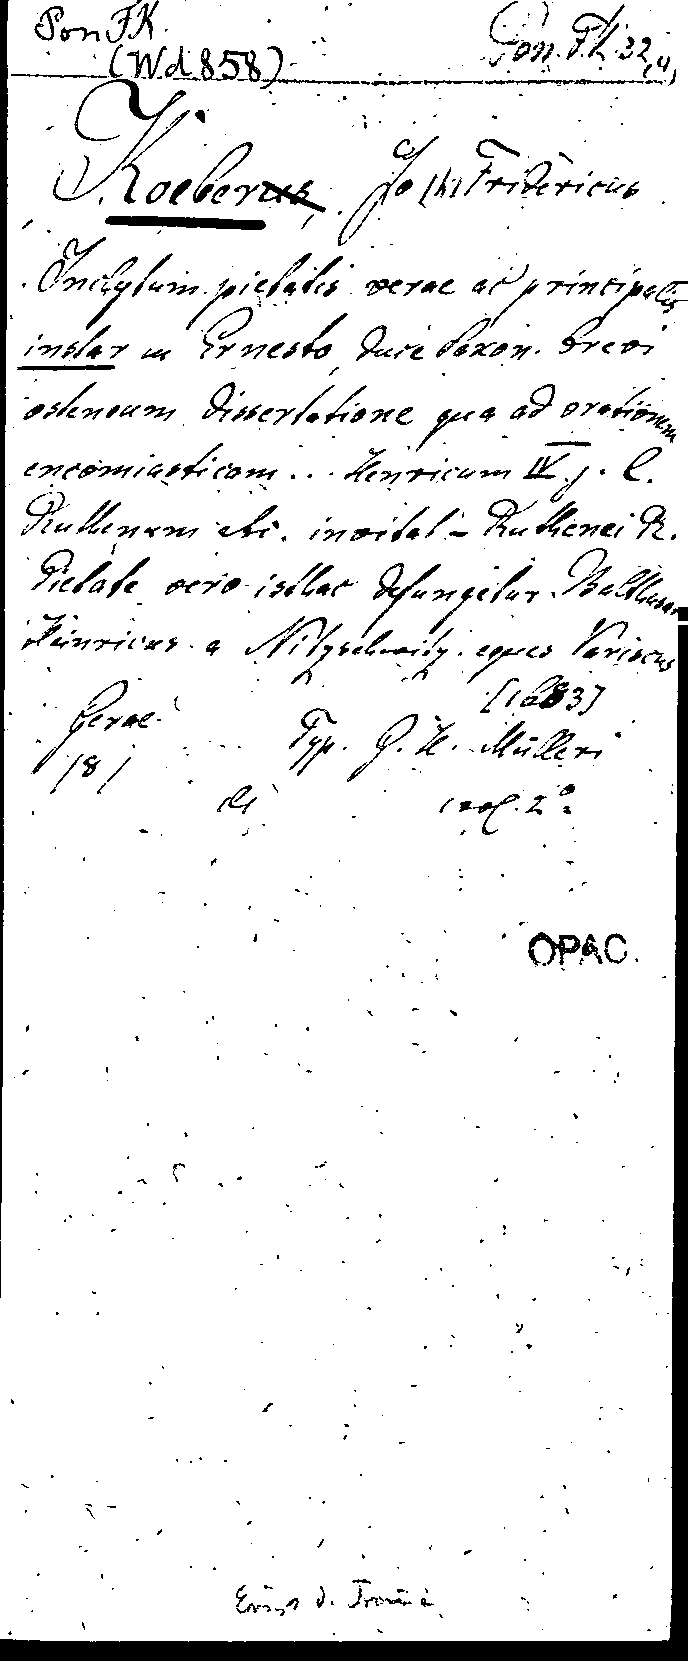 Pon FK Pon. FK. 32,(4)
(Wd 858)
Koeberus, Jo(h) Fridericus
Inclytum pietatis verae ac principalis
instar in Ernesto, Duce Saxon. brevi
ostensum dissertatione qua ad orationem
encomiasticam ... Henricum IV j. L.
Ruthenum etc. invitat - Ruthenei R.
Pietate vero isthac defungetur Balthasar
Heinricus a Nitzschwitz eques Variscus
[1683]
Gerae Typ. J. H. Mülleri
/8/
2°
OPAC